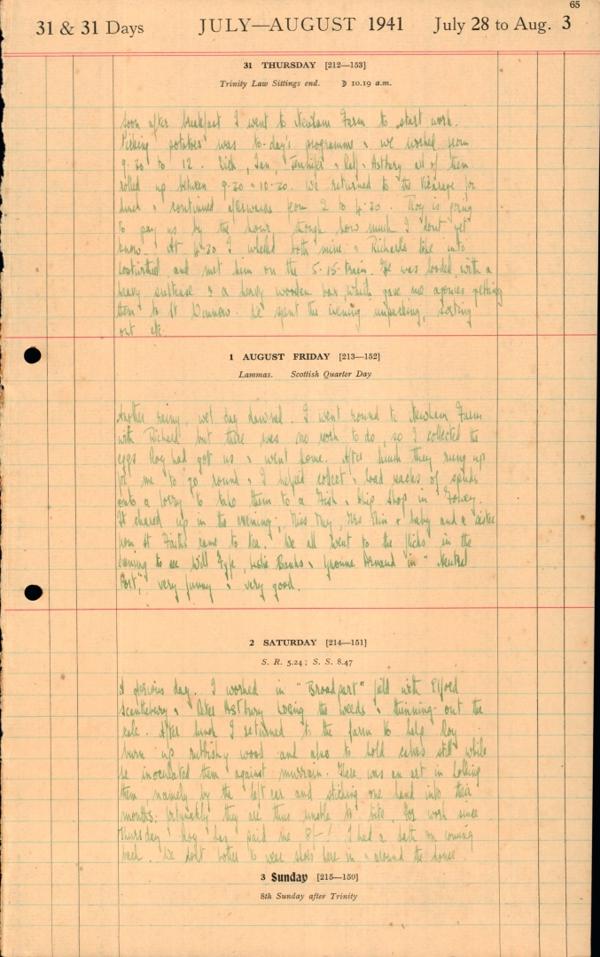 65
31 & 31 Days JULY—AUGUST 1941 July 28 to Aug. 3
31 THURSDAY [212—153]
Trinity Law Sittings end. ☽ 10.19 a.m.
Soon after breakfast I went to Newham Farm to start work.
"Picking potatoes" was to-day's programme & we worked from
9.30 to 12. Ian, Jennifer & Astbury all of them
rolled up between 9.30 & 10.30. We returned to the Vicarage for
lunch & continued afterwards from 2 to 4.30. Roy is going
to pay us by the hour, though how much I don't yet
know. At 4.30 I wheeled both mine & Richard's bike into
Lostwithiel and met him on the 5.15 train. He was loaded with a
heavy suitcase & a heavy wooden box, which gave me agonies getting
them to St Winnow. We spent the evening unpacking, sorting
out etc.
1 AUGUST FRIDAY [213—152]
Lammas. Scottish Quarter Day
Another rainy, wet day dawned. I went round to Newham Farm
with Richard but there was no work to do, so I collected the
eggs Roy had got us & went home. After lunch they rang up
for me to go round & I helped collect & load sacks of spuds
onto a lorry to take them to a Fish & Chip shop in Fowey.
It cleared up in the evening. Miss May, Mrs & baby and a sister
from St Faiths came to tea. We all went to the flicks in the
evening to see Will Fyfe, Leslie Banks & Yvonne Arnaud in "Neutral
Port", very funny & very good.
2 SATURDAY [214—151]
S. R. 5.24; S. S. 8.47
A glorious day. I worked in "Broadpark" field with
& Peter Astbury hoeing the weeds & thinning out the
kale. After lunch I returned to the farm to help Roy
burn up rubbishy wood and also to hold calves still while
he inoculated them against murrain. There was an art in holding
them, namely by the left ear and sticking one hand into their
mouths: fortunately they are then unable to bite. For work since
Thursday Roy has paid me 8/-! I had a bath on coming
back. We don't bother to wear shoes here in & around the house
3 Sunday [215—150]
8th Sunday after Trinity